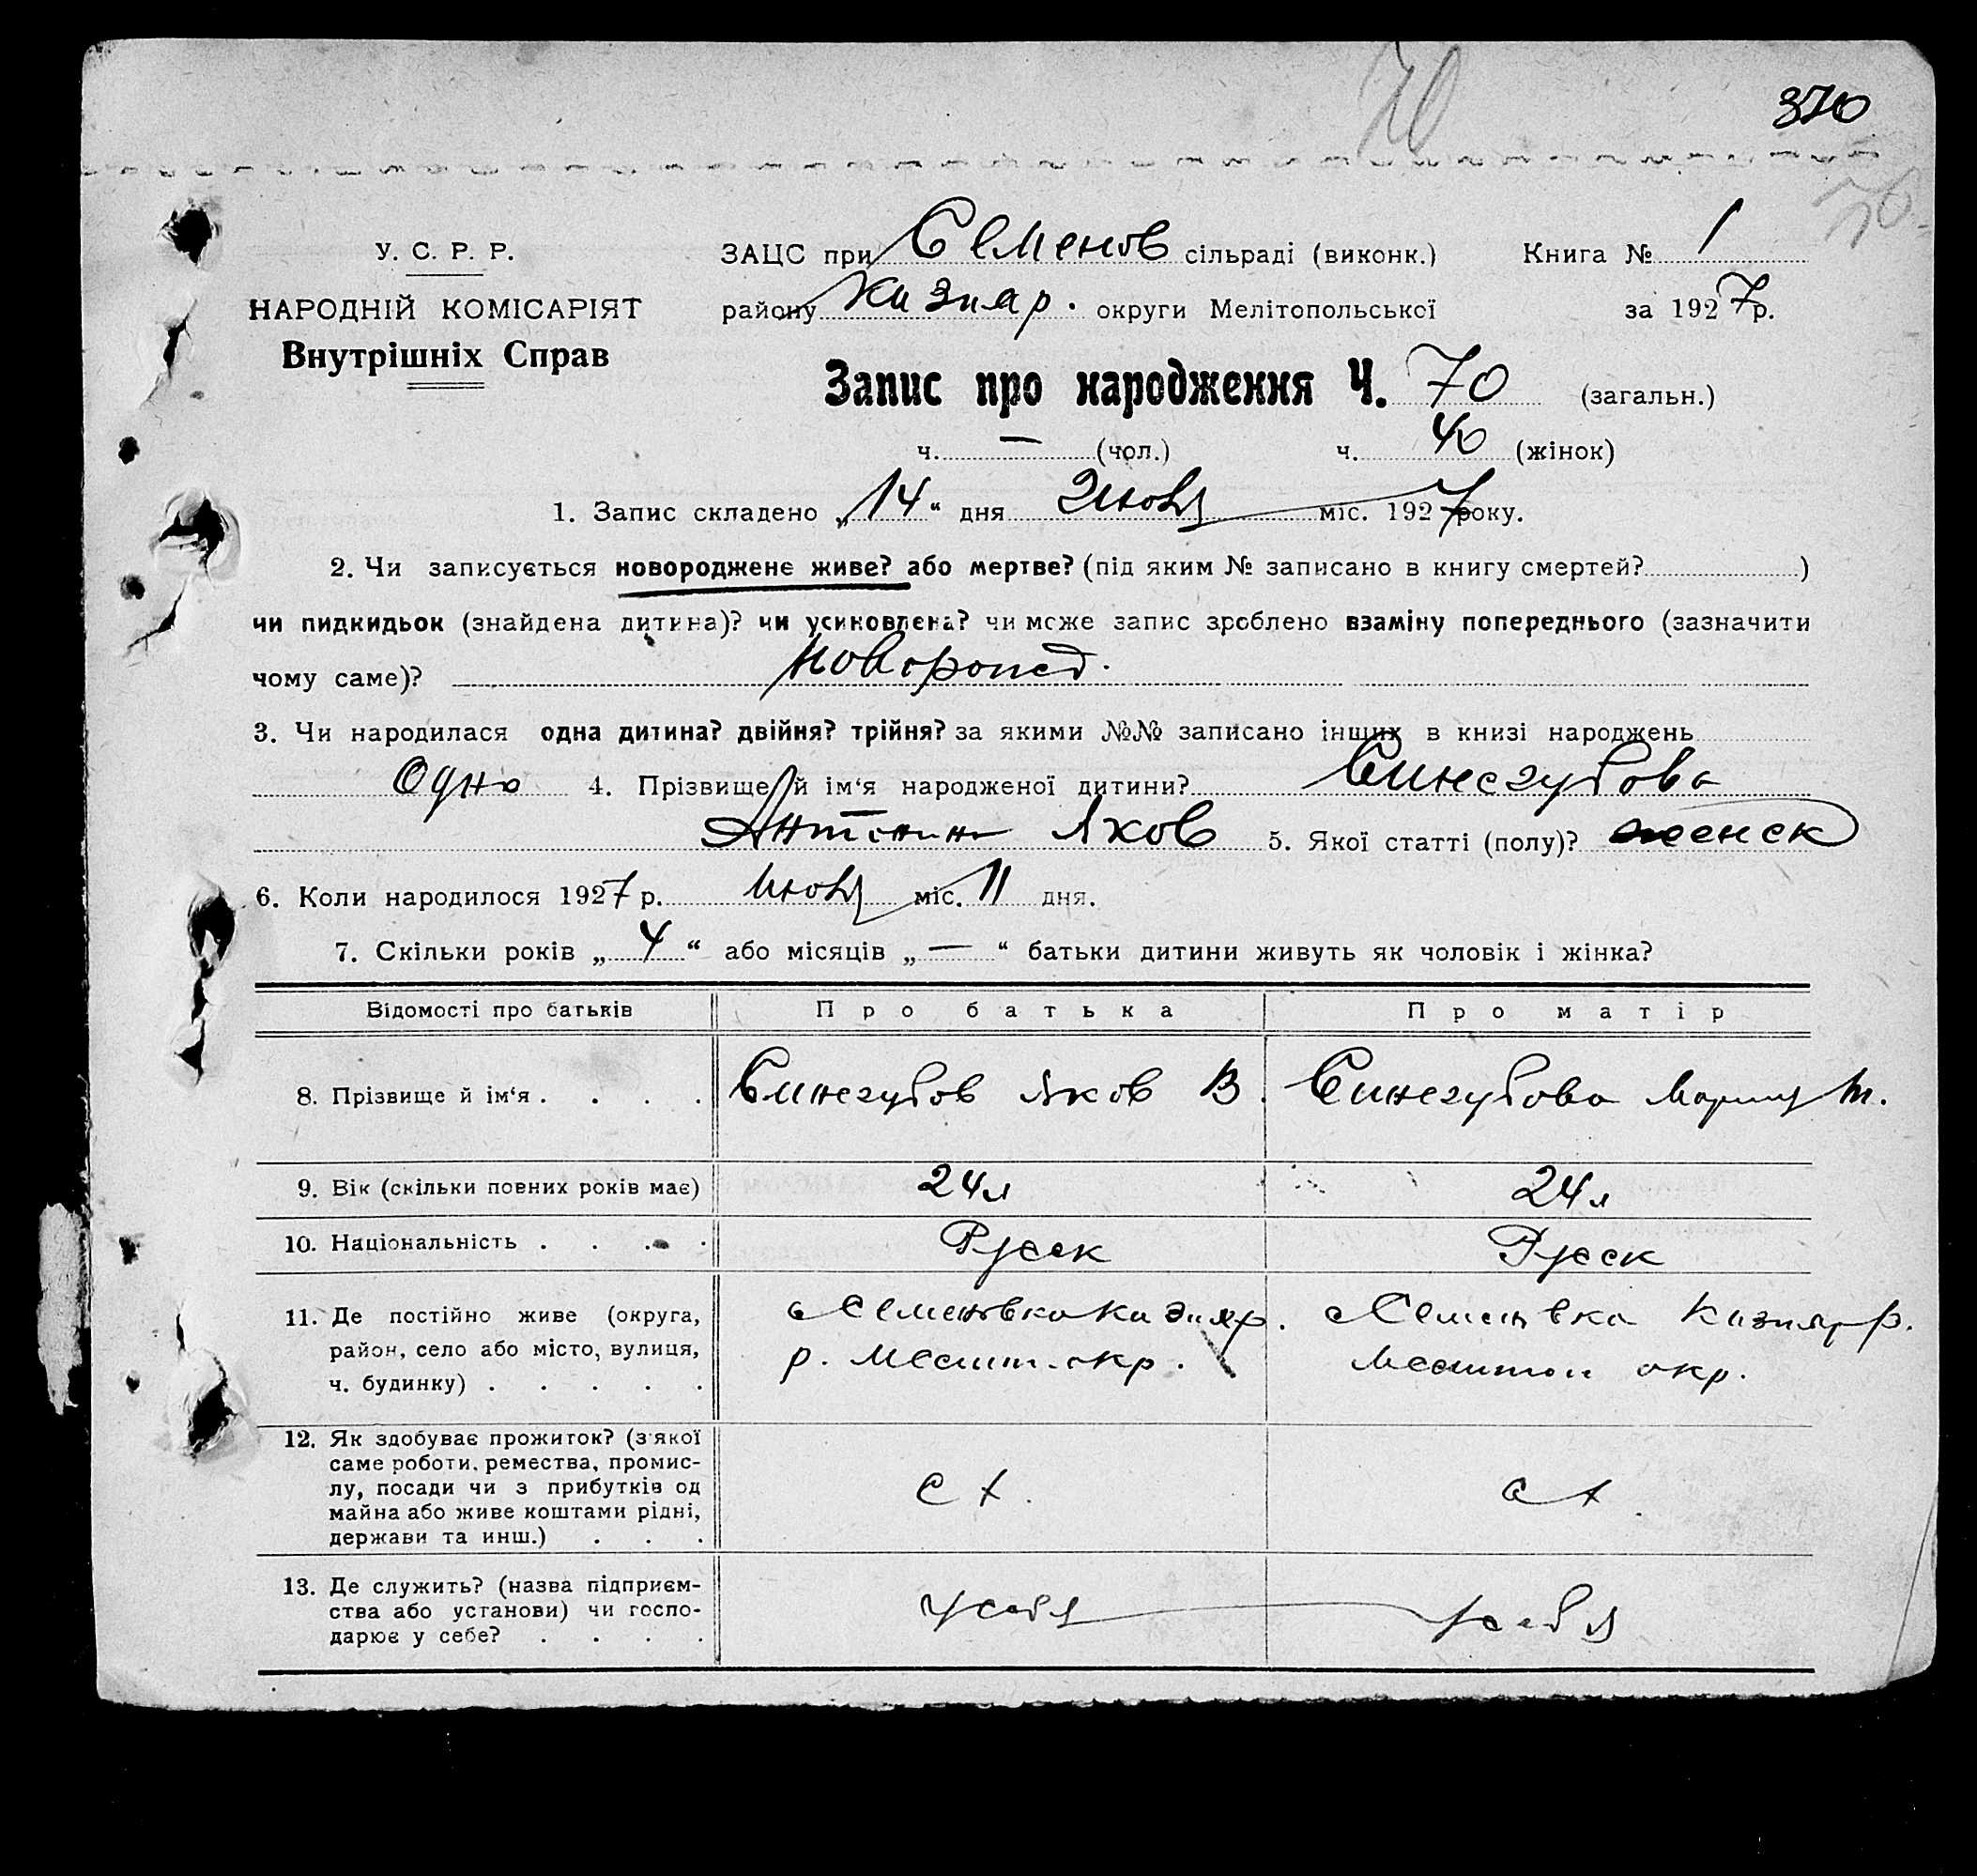 70
370
70
У. С. Р. Р.
НАРОДНІЙ КОМІСАРІЯТ
Внутрішніх Справ
ЗАЦС при Семенов сільраді (виконк.) Книга № 1
району Кизияр. округи Мелітопольської за 1927 р.
Запис про народження Ч. 70 (загальн.)
ч. — (чол.) ч. 40 (жінок)
1. Запис складено „14“ дня Июля міс. 1927 року.
2. Чи записується новороджене живе? або мертве? (під яким № записано в книгу смертей? )
чи пидкидьок (знайдена дитина)? чи усиновлена? чи може запис зроблено взаміну попереднього (зазначити
чому саме)? Новорожд.
3. Чи народилася одна дитина? двійня? трійня? за якими №№ записано інших в книзі народжень
Одно 4. Прізвище й ім‘я народженої дитини? Синегубова
Антонина Яков 5. Якої статті (полу)? женск
6. Коли народилося 1927 р. Июля міс. 11 дня.
7. Скільки років „4“ або місяців „—“ батьки дитини живуть як чоловік і жінка?
Відомості про батьків Про батька Про матір
8. Прізвище й ім‘я . . . . Синегубов Яков В. Синегубова Мария
9. Вік (скільки повних років має) 24 л 24 л
10. Національність . . . . Русск Русск
11. Де постійно живе (округа,
район, село або місто, вулиця,
ч. будинку) . . . . .
с Семеновка Кизияр.
р. Мелит. окр.
с Семеновка Кизияр р.
Мелитоп окр.
12. Як здобуває прожиток? (з якої
саме роботи, ремества, промис-
лу, посади чи з прибутків од
майна або живе коштами рідні,
держави та инш.) . . .
с х. с х.
13. Де служить? (назва підприєм-
ства або установи) чи госпо-
дарює у себе? . . . .
у себя у себя